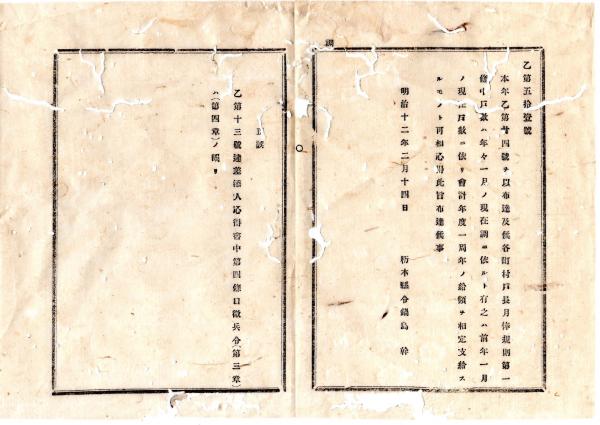 乙第五拾壹號
本年乙第廿四號ヲ以布達及候各町村戸長月俸規則第一
條中戸數ハ年々一月ノ現在調ニ依ルト有之ハ前年一月
ノ現在戸數ニ依リ會計年度一周年ノ給額ヲ相定支給ス
ルモノト可相心得此旨布達候事
明治十二年二月十四日
栃木縣令鍋島 幹
正誤
乙第十三號達 人心得書中第四條口徵兵令(第三章)
ハ(第四章)ノ誤リ